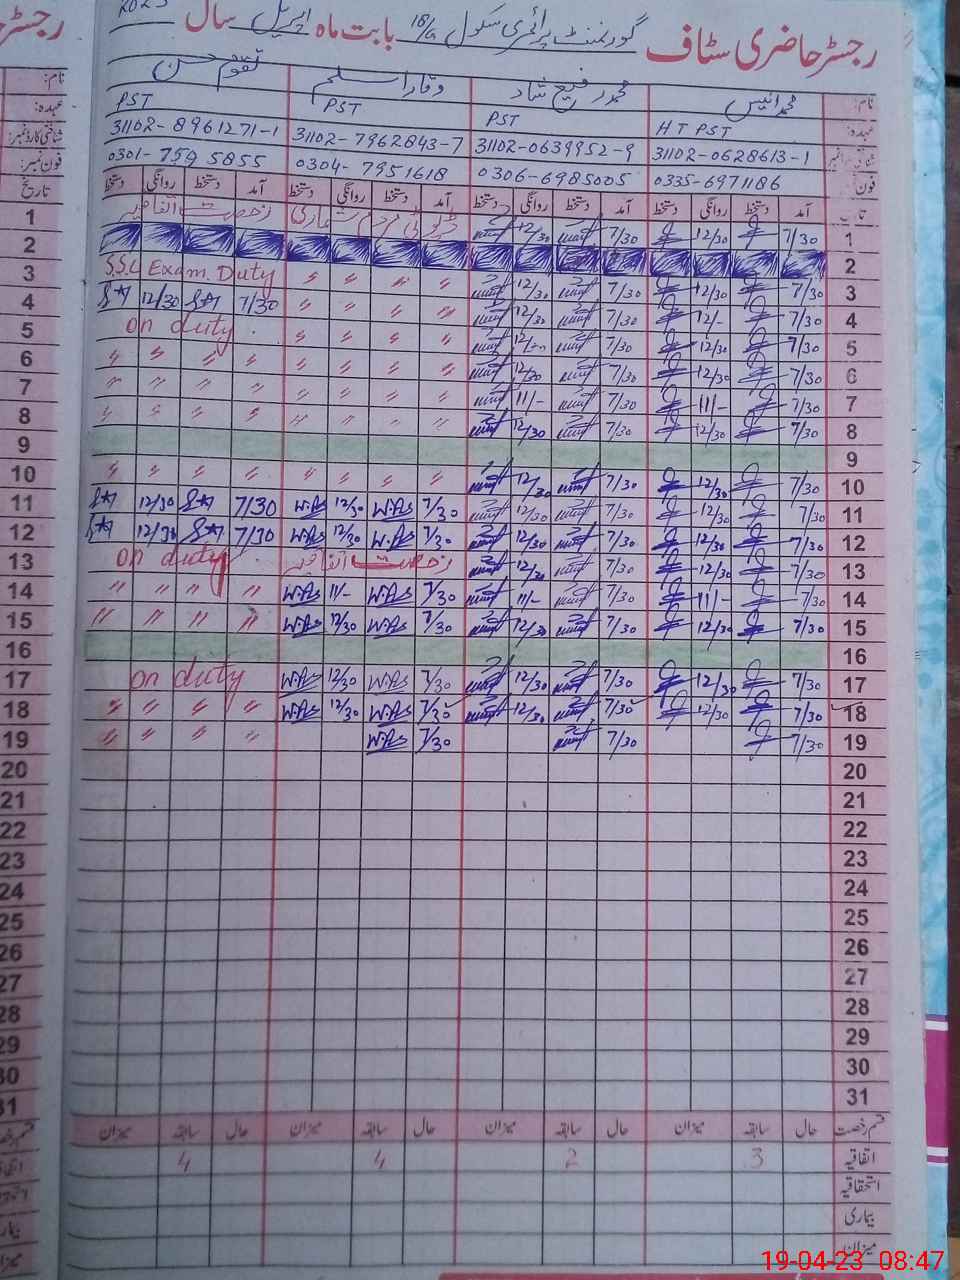 رجسٹر حاضری سٹاف گورنمنٹ پرائمری سکول 18/G بابت ماہ اپریل سال 2023
نام: محمد انیس محمد رفیع شاد وقار اسلم
عہدہ: HT PST PST PST PST
31102-0628613-1 31102-0639952-9 31102-7962843-7 31102-8961271-1
فون: 0335-6971186 0306-6985005 0304-7951618 0301-759 5855
آمد دستخط روانگی دستخط آمد دستخط روانگی دستخط آمد دستخط روانگی دستخط آمد دستخط روانگی دستخط تاریخ
1 7/30 12/30 7/30 12/30 رخصت اتفاقیہ
2
3 7/30 12/30 7/30 12/30 " " " " S.S.C Exam Duty
4 7/30 12/- 7/30 12/30 " " " " 7/30 12/30
5 7/30 12/30 7/30 " " " " on duty
6 7/30 12/30 7/30 12/30 " " " " " " " "
7 7/30 11/- 7/30 11/- " " " " " " " "
8 7/30 12/30 7/30 12/30 " " " " " " " "
9
10 7/30 12/30 7/30 12/30 " " " " " " " "
11 7/30 12/30 7/30 12/30 7/30 W.As 12/30 W.As 7/30 12/30
12 7/30 12/30 7/30 12/30 7/30 W.As 12/30 W.As 7/30 12/30
13 7/30 12/30 7/30 12/30 رخصت اتفاقیہ on duty
14 7/30 11/- 7/30 11/- 7/30 W.As 11/- W.As " " " "
15 7/30 12/30 7/30 12/30 7/30 W.As 12/30 W.As " " " "
16
17 7/30 12/30 7/30 12/30 7/30 W.As 12/30 W.As on duty
18 7/30 12/30 7/30 12/30 7/30 W.As 12/30 W.As " " " "
19 7/30 7/30 7/30 W.As " " " "
20
21
22
23
24
25
26
27
28
29
30
31
قسم رخصت حال سابقہ میزان حال سابقہ میزان حال سابقہ میزان حال سابقہ میزان
اتفاقیہ 3 2 4 4
استحقاقیہ
بیماری
میزان
19-04-23 08:47